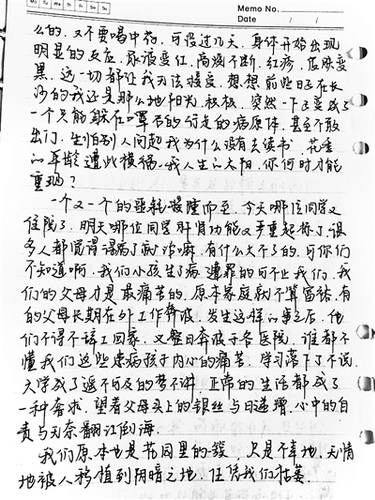 Memo No.
Mo Tu We Th Fr Sa Su
Date / /
么的,又不要喝中药,可没过几天,身体开始出现
明显的反应,尿液变红,高烧不断,红疹,皮肤变
黑,这一切都让我无法接受,想想前些日子在长
沙的我还是那么地阳光、积极,突然一下子变成了
一个只能躲在口罩后的行走的病原体,甚至不敢
出门,生怕别人问起我为什么没有去读书,花季
的年龄遭此横祸,我人生的太阳,你何时才能
重现?
一个又一个的噩耗接踵而至,今天哪位同学又
住院了,明天哪位同学肝肾功能又严重超标了,很
多人都觉得得病了就治嘛,有什么大不了的,可你们
不知道啊,我们小孩生了病遭罪的可不止我们,我
们的父母才是最痛苦的,原本家庭就不算富裕,有
的父母长期在外工作奔波,发生这样的事之后,他
们不得不辞工回家,又整日奔波于各医院,谁都不
懂我们这些患病孩子内心的痛苦,学习落下了不说,
大学成了遥不可及的梦不讲,正常的生活都成了
一种奢求,望着父母头上的银丝与日递增,心中的自
责与无奈翻江倒海。
我们原本也是花园里的一簇,只是不幸地,无情
地被人移植到阴暗之地,任凭我们枯萎。